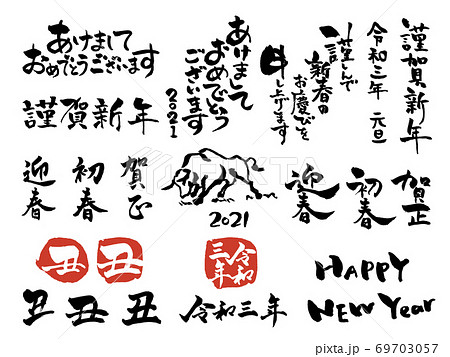 あけまして
おめでとうございます
謹賀新年
迎春
初春
賀正
あけまして
おめでとう
ございます
2021
謹んで
新春の
お慶びを
申し上げます
令和三年 元旦
謹賀新年
2021
迎春
初春
賀正
丑
丑
丑
丑
丑
令和
三年
令和三年
HAPPY
NEW Year
PIXTA
pixta.jp - 69703057